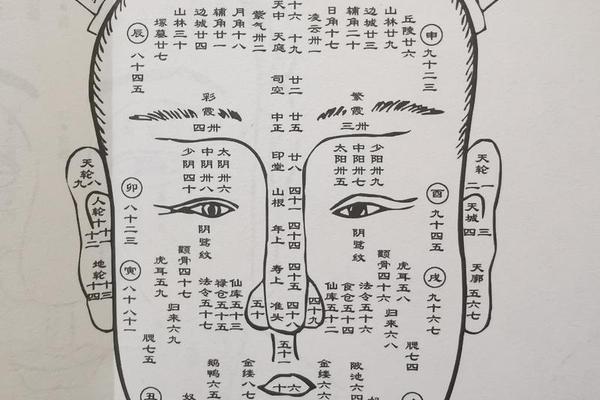 天中 十六
天庭 十九
司空 廿二
中正 廿五
印堂 廿八
山根 四十一
年上 四十四
寿上 四十五
准头 四十八
五十一
六十
凌云 卅一
日角 十七
辅角 廿二
边城 廿三
山林 廿九
丘陵 廿六
申 九十二三
紫气 卅二
月角 十八
辅角 廿一
边城 廿四
山林 三十
塚墓 廿七
辰 八十四五
彩霞 卅四
繁霞 卅三
太阴 卅六
中阴 卅八
少阴 四十
太阳 卅五
中阳 卅七
少阳 卅九
天轮 八九
人轮 十 十一 十二
地轮 十三 十四
天轮 一二
天城 三四
天廓 五六七
卯 八十二三
酉 九十四五
寅 八十 八十一
戌 九十六七
丑
阴骘纹
阴骘纹
颧骨 四十七
颧骨 四十六
虎耳 五九
虎耳 五八
归来 六九
归来 六八
法令 五十七
禄仓 五十五
仙库 五十三
五十
四十九
仙库 五十二
食仓 五十四
法令 五十六
腮 七五
腮 七四
鹅鸭 六五
金缕 八七
金缕 六六
陂池 六四
奴
奴